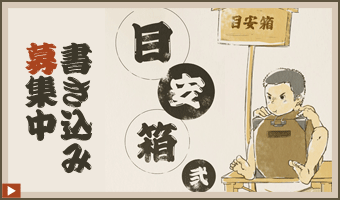 書き込み
募集中
目安箱
弐
目安箱